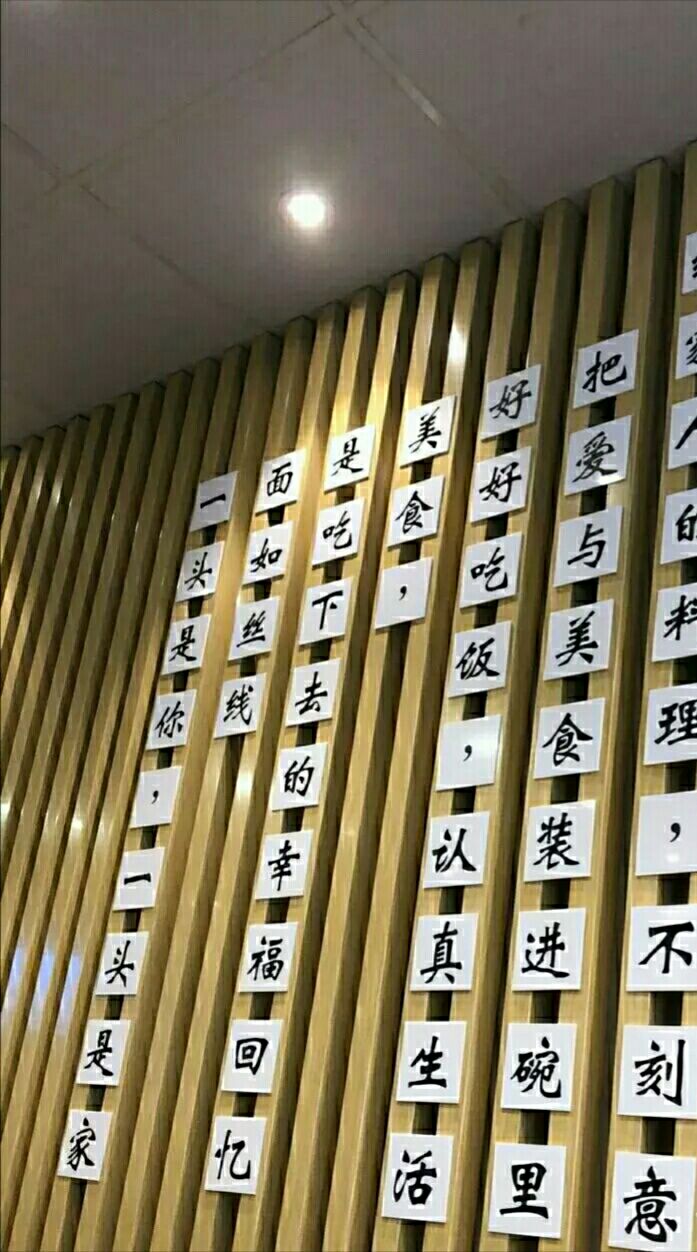 人的料理，不刻意
把爱与美食装进碗里
好好吃饭，认真生活
美食，
是吃下去的幸福回忆
面如丝线
一头是你，一头是家